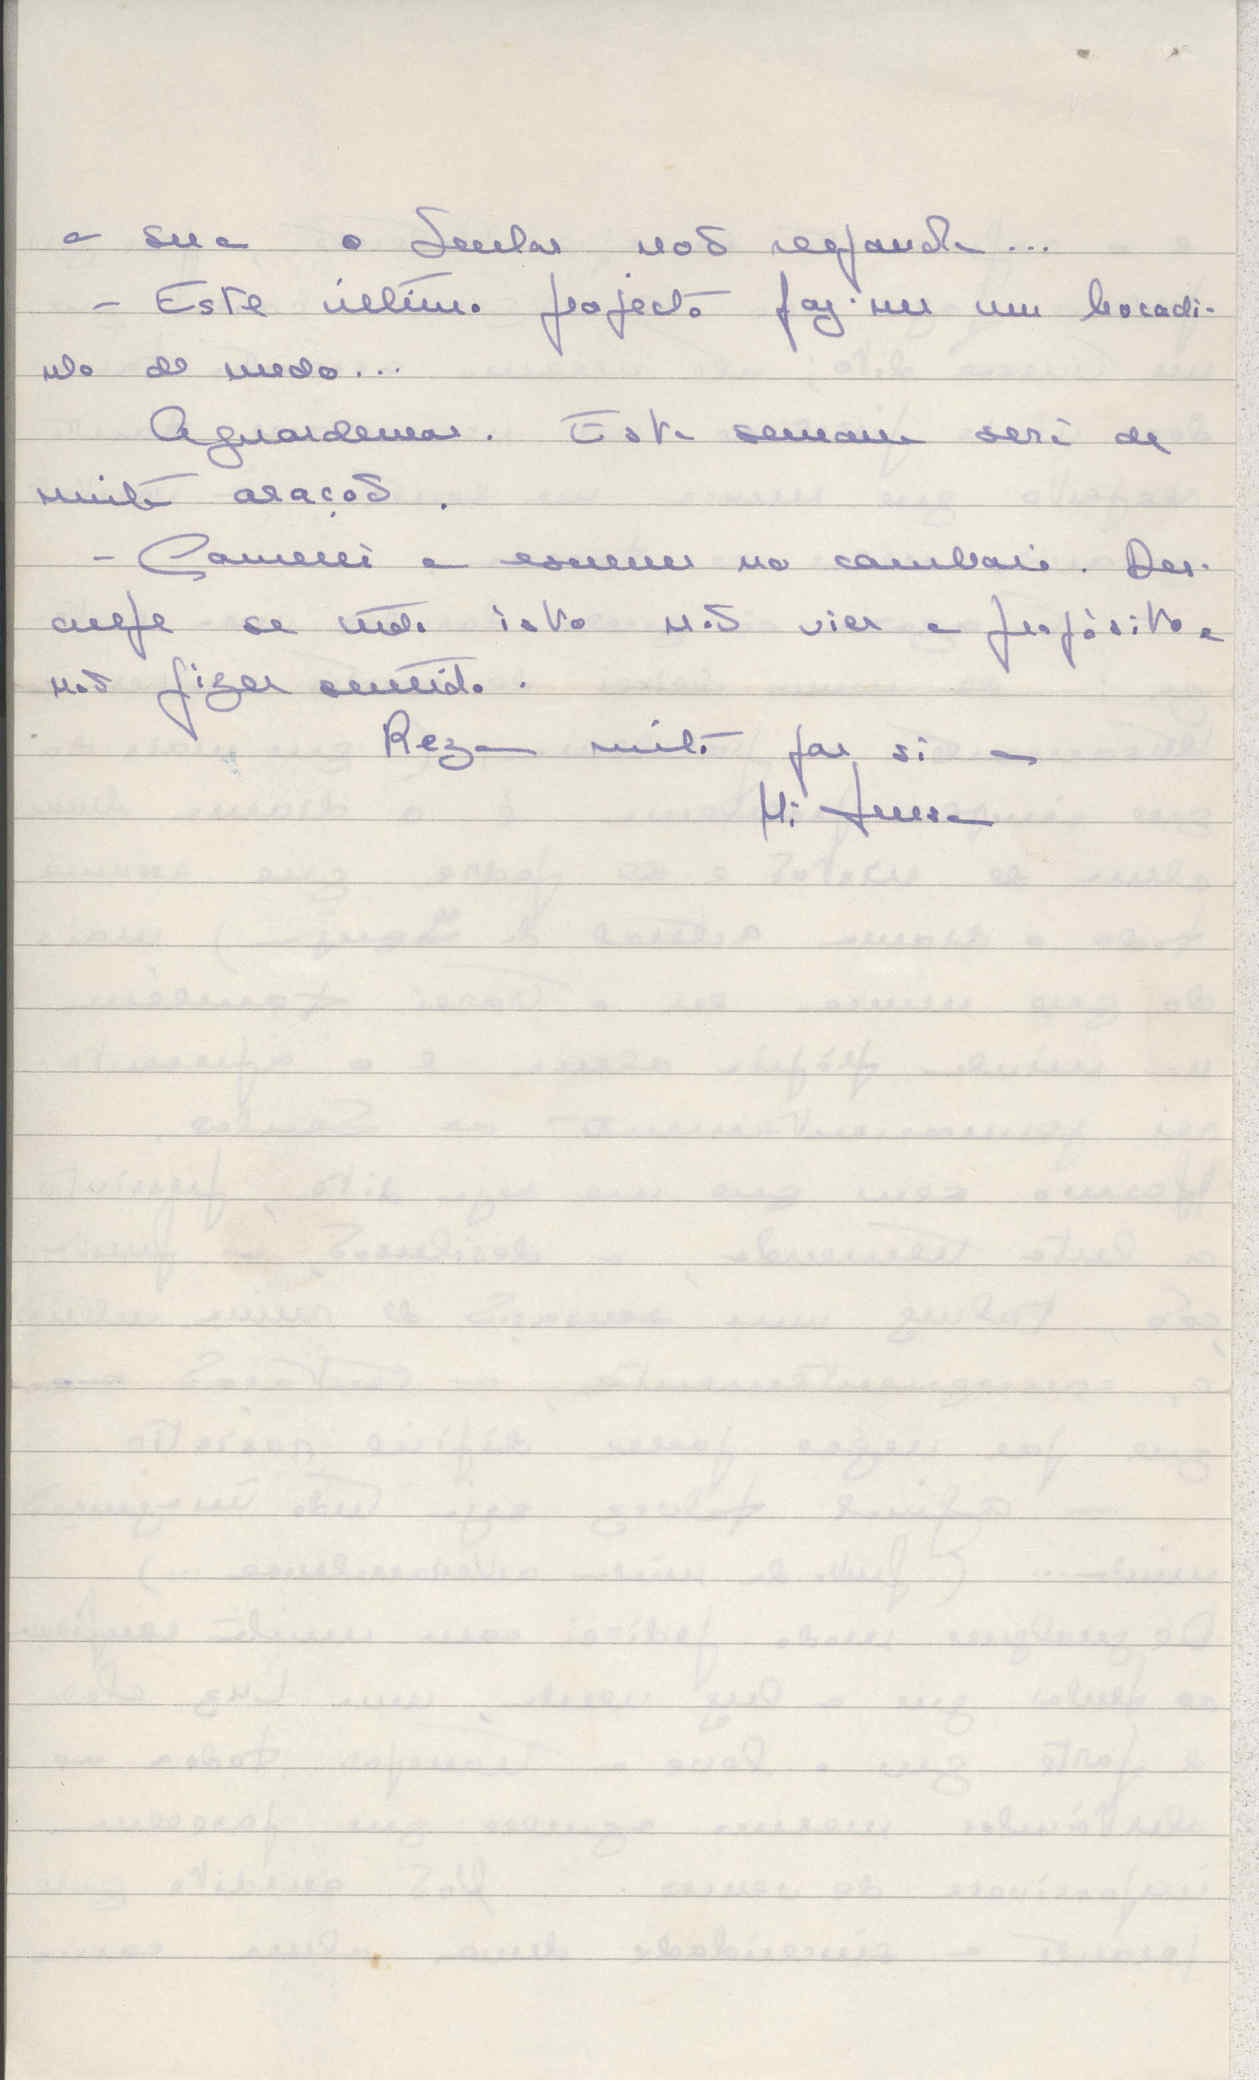 a sua o Senhor não responda...
- Este último projecto faz-me um bocadi-
nho de medo...
Aguardemos. Esta semana será de
muita oração.
- Comecei a escrever no comboio. Des-
culpe se tudo isto não vier a propósito e
não fizer sentido.
Reza muito por si a
M: Luísa